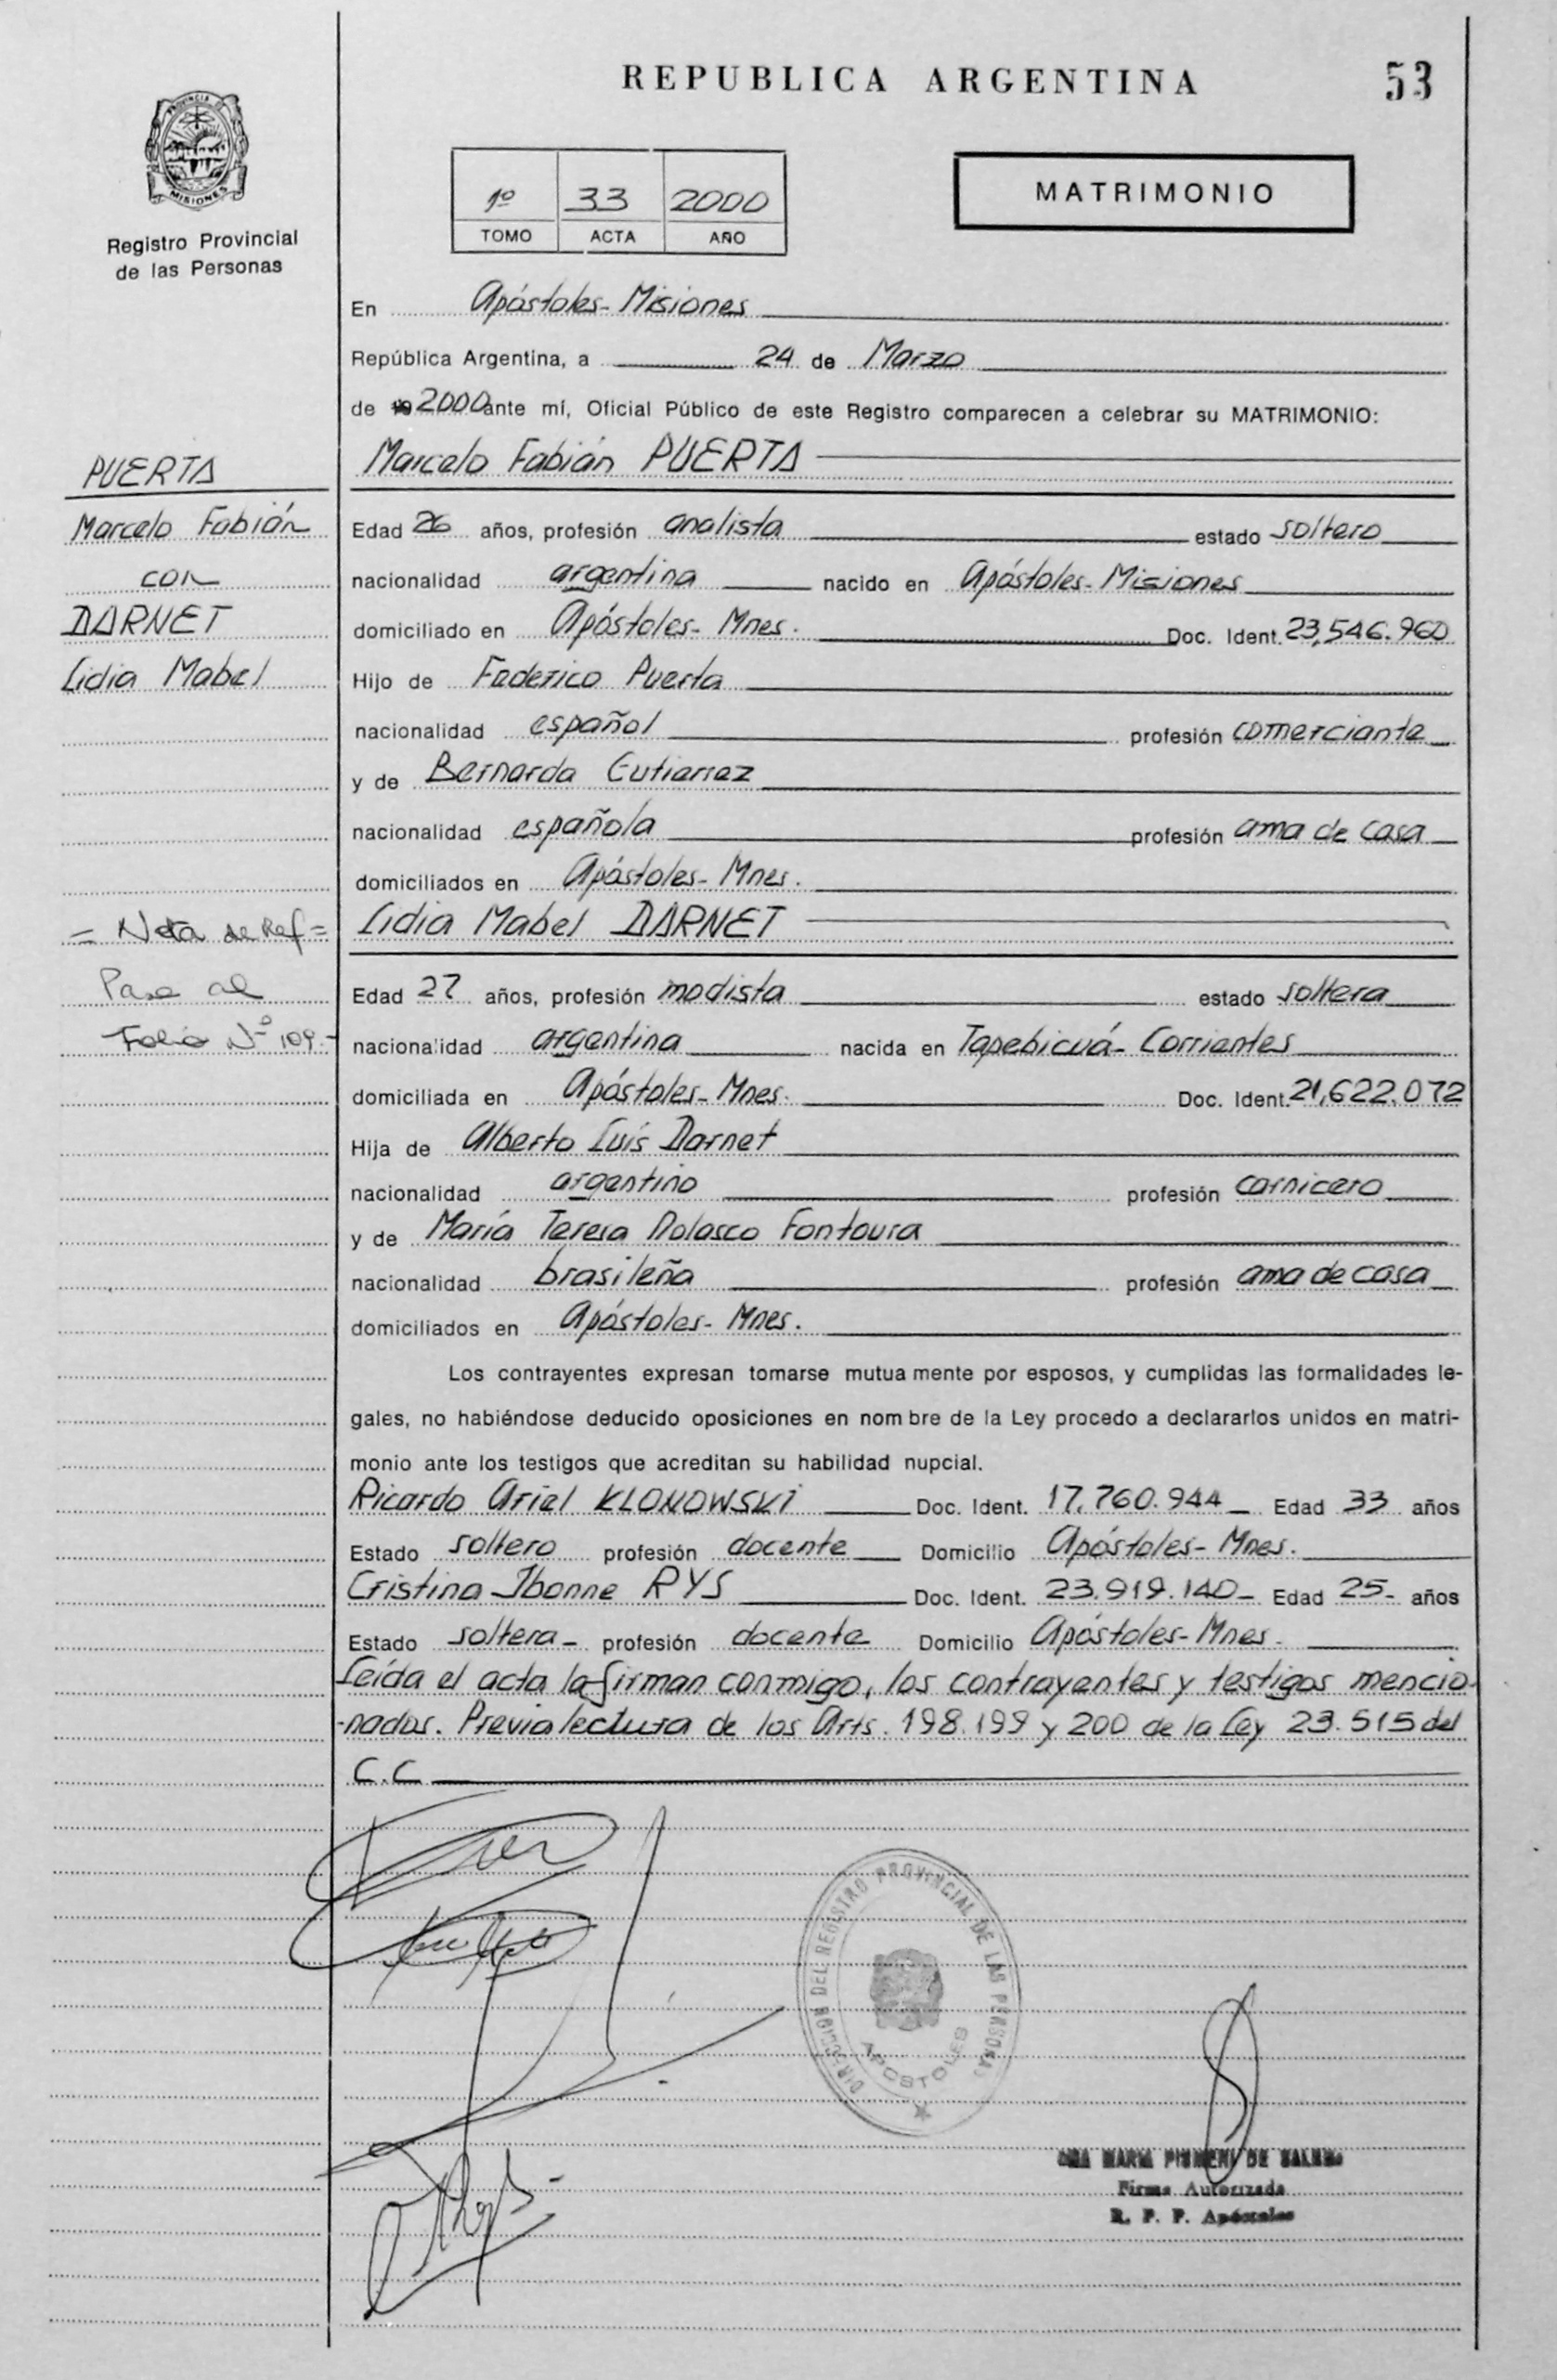 REPUBLICA ARGENTINA
53
PROVINCIA DE
MISIONES
Registro Provincial
de las Personas
1º 33 2000
TOMO ACTA AÑO
MATRIMONIO
En Apóstoles - Misiones
República Argentina, a 24 de Marzo
de 19 2000 ante mí, Oficial Público de este Registro comparecen a celebrar su MATRIMONIO:
PUERTA
Marcelo Fabián
con
DARNET
Lidia Mabel
= Nota de Ref =
Pase al
Folio Nº 109.-
Marcelo Fabián PUERTA
Edad 26 años, profesión analista estado soltero
nacionalidad argentina nacido en Apóstoles - Misiones
domiciliado en Apóstoles - Mnes. Doc. Ident. 23,546.960
Hijo de Federico Puerta
nacionalidad español profesión comerciante
y de Bernarda Gutierrez
nacionalidad española profesión ama de casa
domiciliados en Apóstoles - Mnes.
Lidia Mabel DARNET
Edad 27 años, profesión modista estado soltera
nacionalidad argentina nacida en Tapebicuá - Corrientes
domiciliada en Apóstoles - Mnes. Doc. Ident. 21,622.072
Hija de Alberto Luís Darnet
nacionalidad argentino profesión carnicero
y de María Teresa Nolasco Fontoura
nacionalidad brasileña profesión ama de casa
domiciliados en Apóstoles - Mnes.
Los contrayentes expresan tomarse mutuamente por esposos, y cumplidas las formalidades le-
gales, no habiéndose deducido oposiciones en nombre de la Ley procedo a declararlos unidos en matri-
monio ante los testigos que acreditan su habilidad nupcial.
Ricardo Ariel KLONOWSKI Doc. Ident. 17.760.944 Edad 33 años
Estado soltero profesión docente Domicilio Apóstoles - Mnes.
Cristina Ibonne RYS Doc. Ident. 23.919.140 Edad 25 años
Estado soltera profesión docente Domicilio Apóstoles - Mnes.
Leída el acta la firman conmigo, los contrayentes y testigos mencio-
-nados. Previa lectura de los Arts. 198.199 y 200 de la Ley 23.515 del
C.C
DIRECCION DEL REGISTRO PROVINCIAL DE LAS PERSONAS
APOSTOLES
MARIA DE
Firma Autorizada
R. P. P. Apóstoles